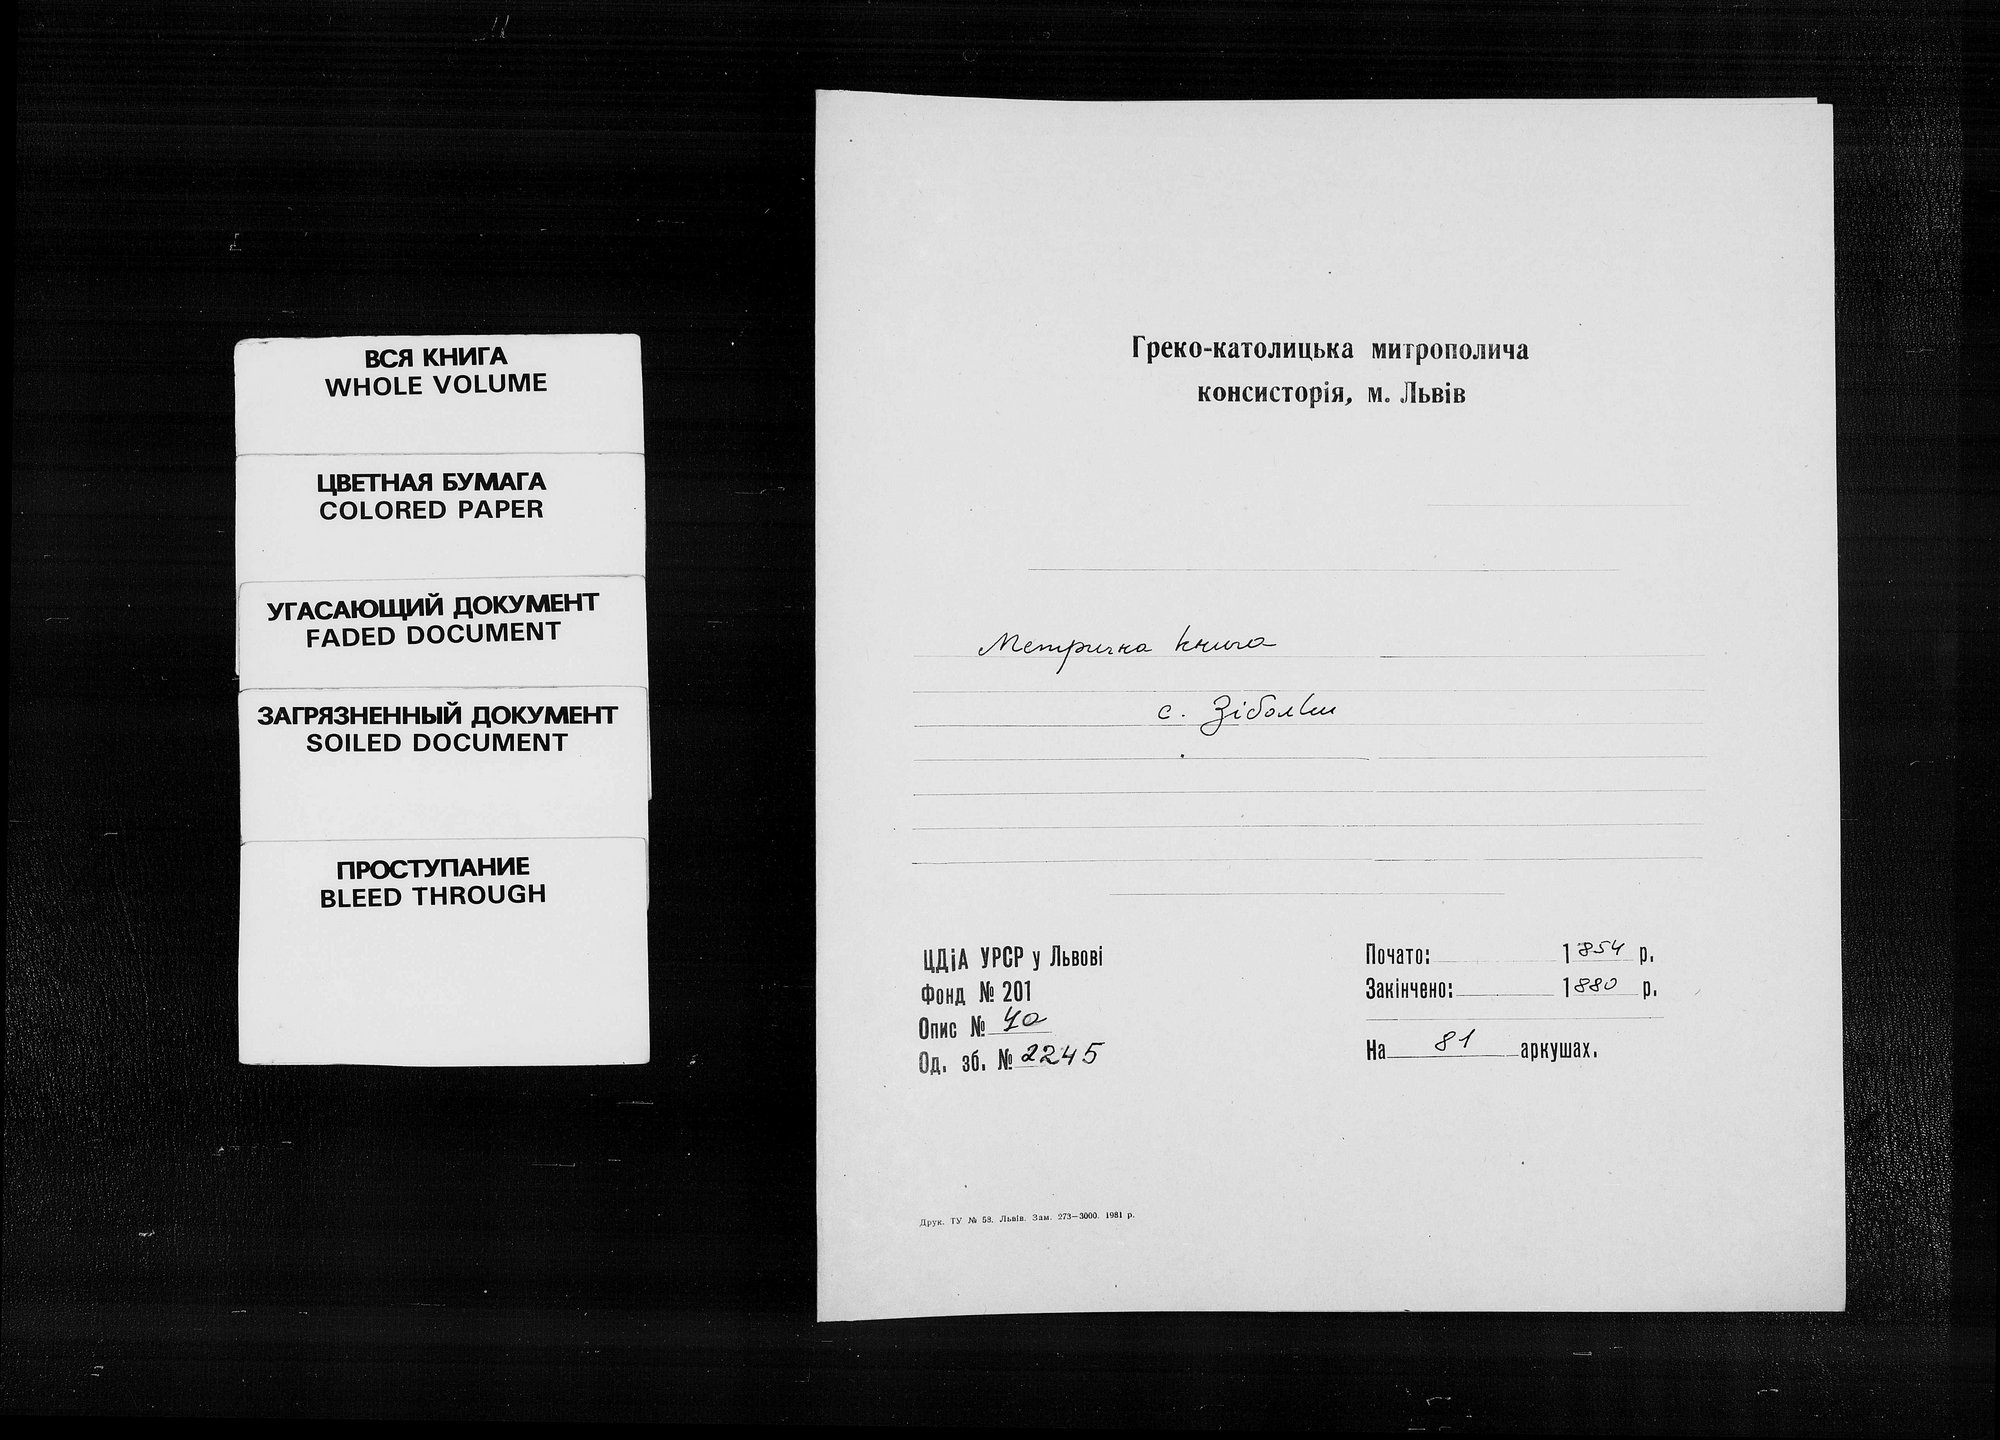 ВСЯ КНИГА
WHOLE VOLUME
ЦВЕТНАЯ БУМАГА
COLORED PAPER
УГАСАЮЩИЙ ДОКУМЕНТ
FADED DOCUMENT
ЗАГРЯЗНЕННЫЙ ДОКУМЕНТ
SOILED DOCUMENT
ПРОСТУПАНИЕ
BLEED THROUGH
Греко-католицька митрополича
консисторія, м. Львів
Метрична книга
с. Зіболки
ЦДіА УРСР у Львові
Фонд № 201
Опис № 4а
Од. зб. № 2245
Почато: 1854 р.
Закінчено: 1880 р.
На 81 аркушах.
Друк. ТУ № 58. Львів. Зам. 273—3000. 1981 р.